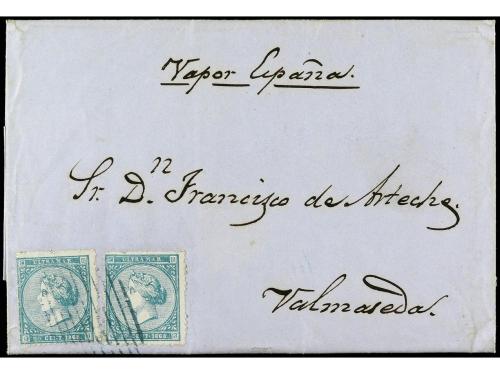 Vapor España.
Sr. Dⁿ Francisco de Arteche.
Valmaseda.
ULTRAMAR
ULTRAMAR
CENT. 1868
T. 1868